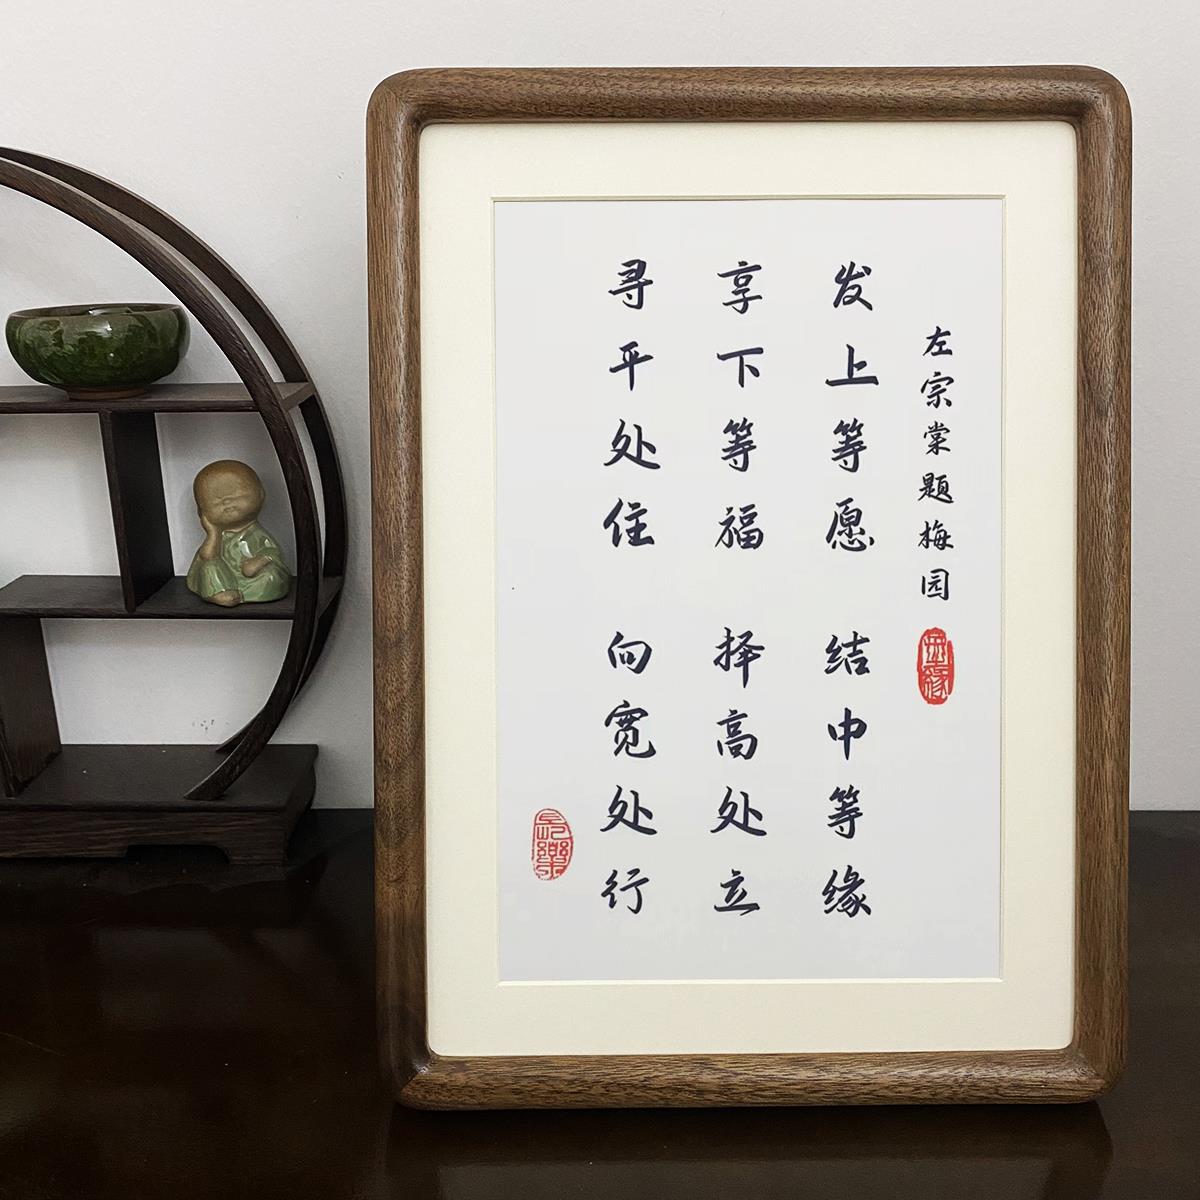 左宗棠题梅园
无缘
发上等愿 结中等缘
享下等福 择高处立
寻平处住 向宽处行
長樂